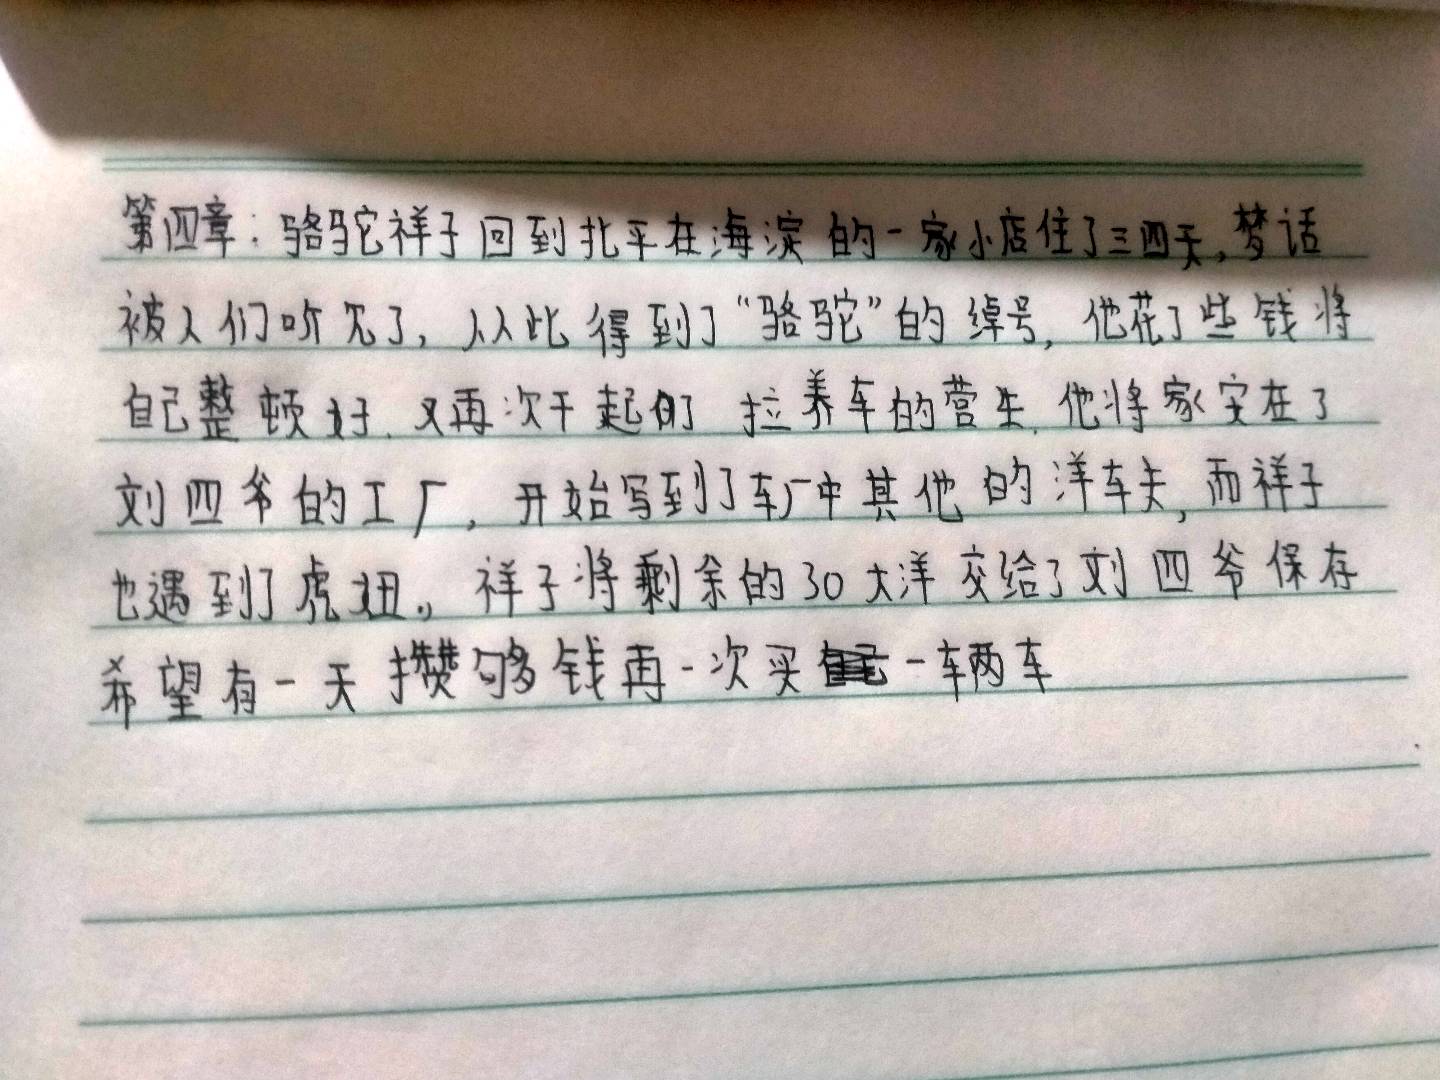 第四章：骆驼祥子回到北平在海淀的一家小店住了三四天，梦话
被人们听见了，从此得到了“骆驼”的绰号，他花了些钱将
自己整顿好，又再次干起的拉养车的营生，他将家安在了
刘四爷的工厂，开始写到了车厂中其他的洋车夫，而祥子
也遇到了虎妞。祥子将剩余的30大洋交给了刘四爷保存
希望有一天攒够钱再一次买一车两车